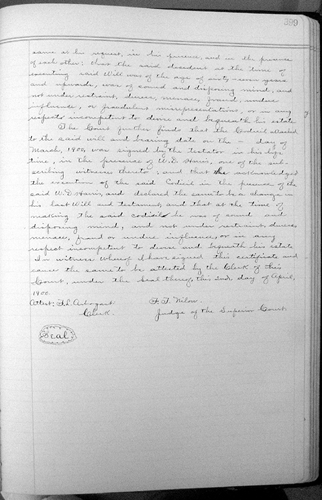 399
same at his request, in his presence, and in the presence
of each other; that the said decedent at the time of
executing said Will was of the age of sixty-seven years
and upwards, was of sound and disposing mind, and
not under restraint, duress, menace, fraud, undue
influence, or fraudulent misrepresentations, or in any
respect incompetent to devise and bequeath his estate.
The Court further finds that the Codicil attached
to the said will and bearing date on the - day of
March, 1900, was signed by the testator in his life
time, in the presence of W.D. one of the sub
scribing witnesses thereto, and that he acknowledged
the execution of the said Codicil in the presence of the
said W.D. and declared the same to be a change in
his last Will and testament, and that at the time of
making the said codicil he was of sound and
disposing mind, and not under restraint, duress,
menace, fraud or undue influence, or in any
respect incompetent to devise and bequeath his estate.
In witness whereof, I have signed this certificate and
cause the same to be attested by the Clerk of this
Court, under the seal thereof, this day of April,
1900.
Attest:
Clerk. Judge of the Superior Court.
Seal